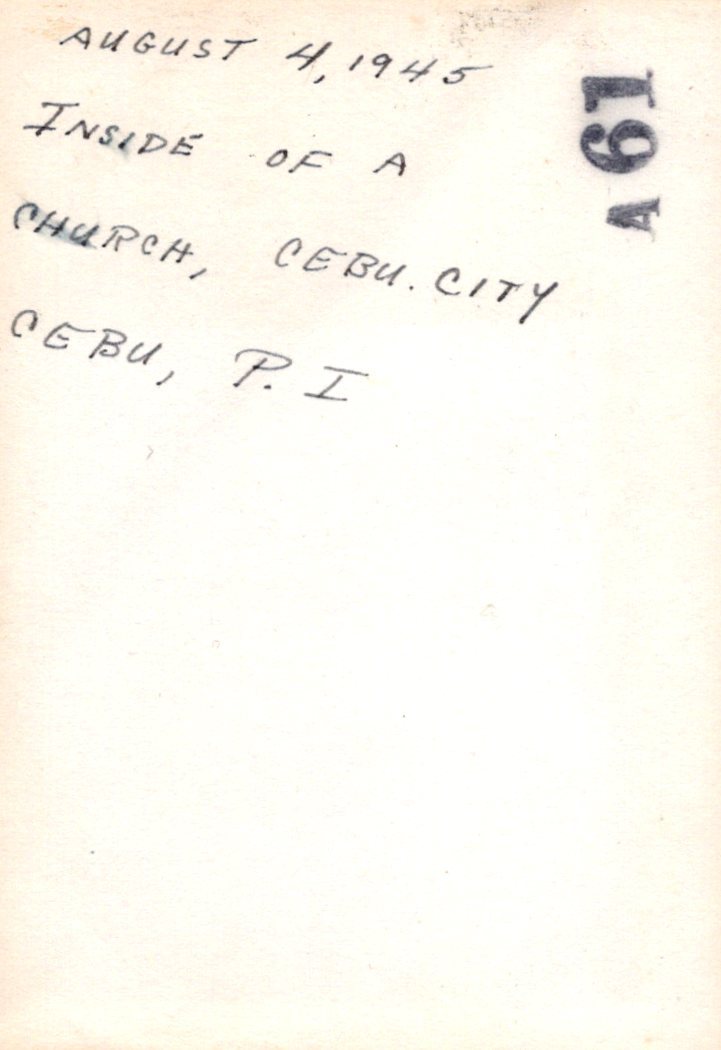 AUGUST 4, 1945
INSIDE OF A
CHURCH, CEBU. CITY
CEBU, P. I
A 61